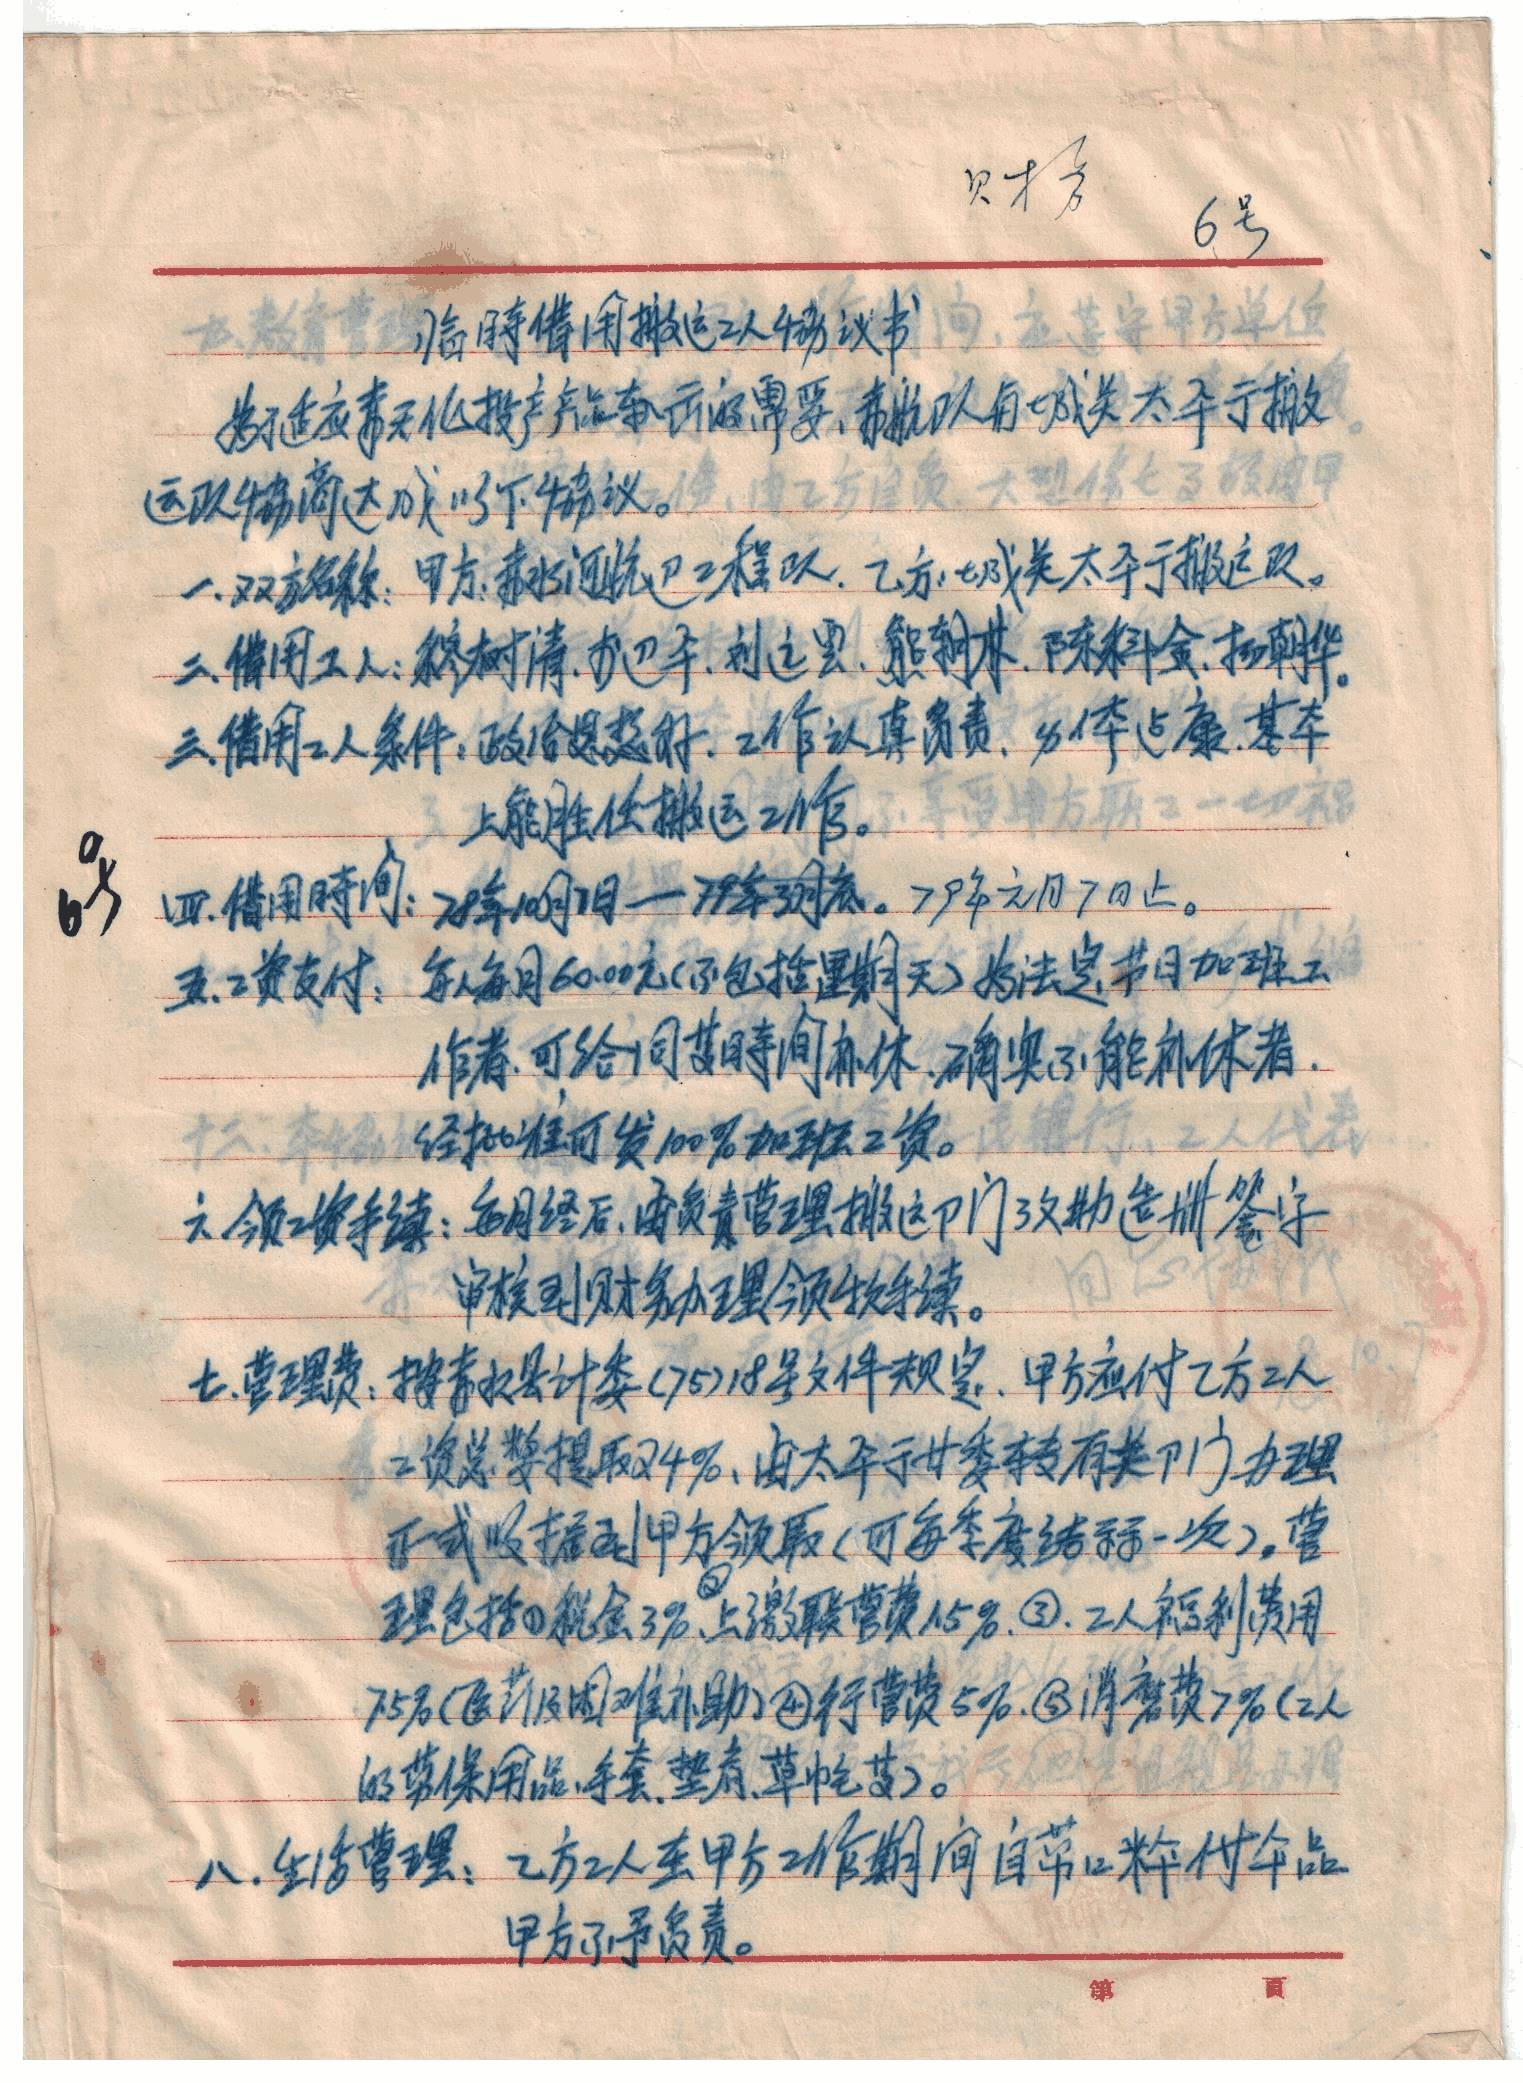 财务
6号
临时借用搬运工人协议书
为了适应赤天化投产产品车运的需要,赤航队与城关太平于搬
运队协商达成以下协议。
一、双方名称:甲方:赤水河航卫工程队、乙方:城关太平于搬运队。
二、借用工人:树清、巴平、刘运云、熊朝林、陈科金、杨朝华。
三、借用工人条件:政治思想好、工作认真负责、身体健康、基本
上能胜任搬运工作。
四、借用时间:78年10月7日—79年3月底。79年元月7日止。
6号
五、工资支付:每人每月60.00元(不包括星期天)为法定节日加班工
作者,可给同等时间补休,确实不能补休者,
经批准可发100%加班工资。
六、领工资手续:每月终后,由负责管理搬运卩门协助造册签字
审核到财务办理领款手续。
七、管理费:按赤水县计委(75)18号文件规定、甲方应付乙方工人
工资总数提取24%、由太平于廿委转有关卩门办理
正式收据到甲方领取(可每季度结祘一次)。管
理包括①税金3%、②上缴联营费1.5%、③、工人福利费用
7.5%(医药及困难补助)④行管费5%、⑤消磨费7%(工人
的劳保用品、手套、垫肩、草帽等)。
八、生活管理:乙方工人在甲方工作期间自带口粮付伞品
甲方不予负责。
第 页